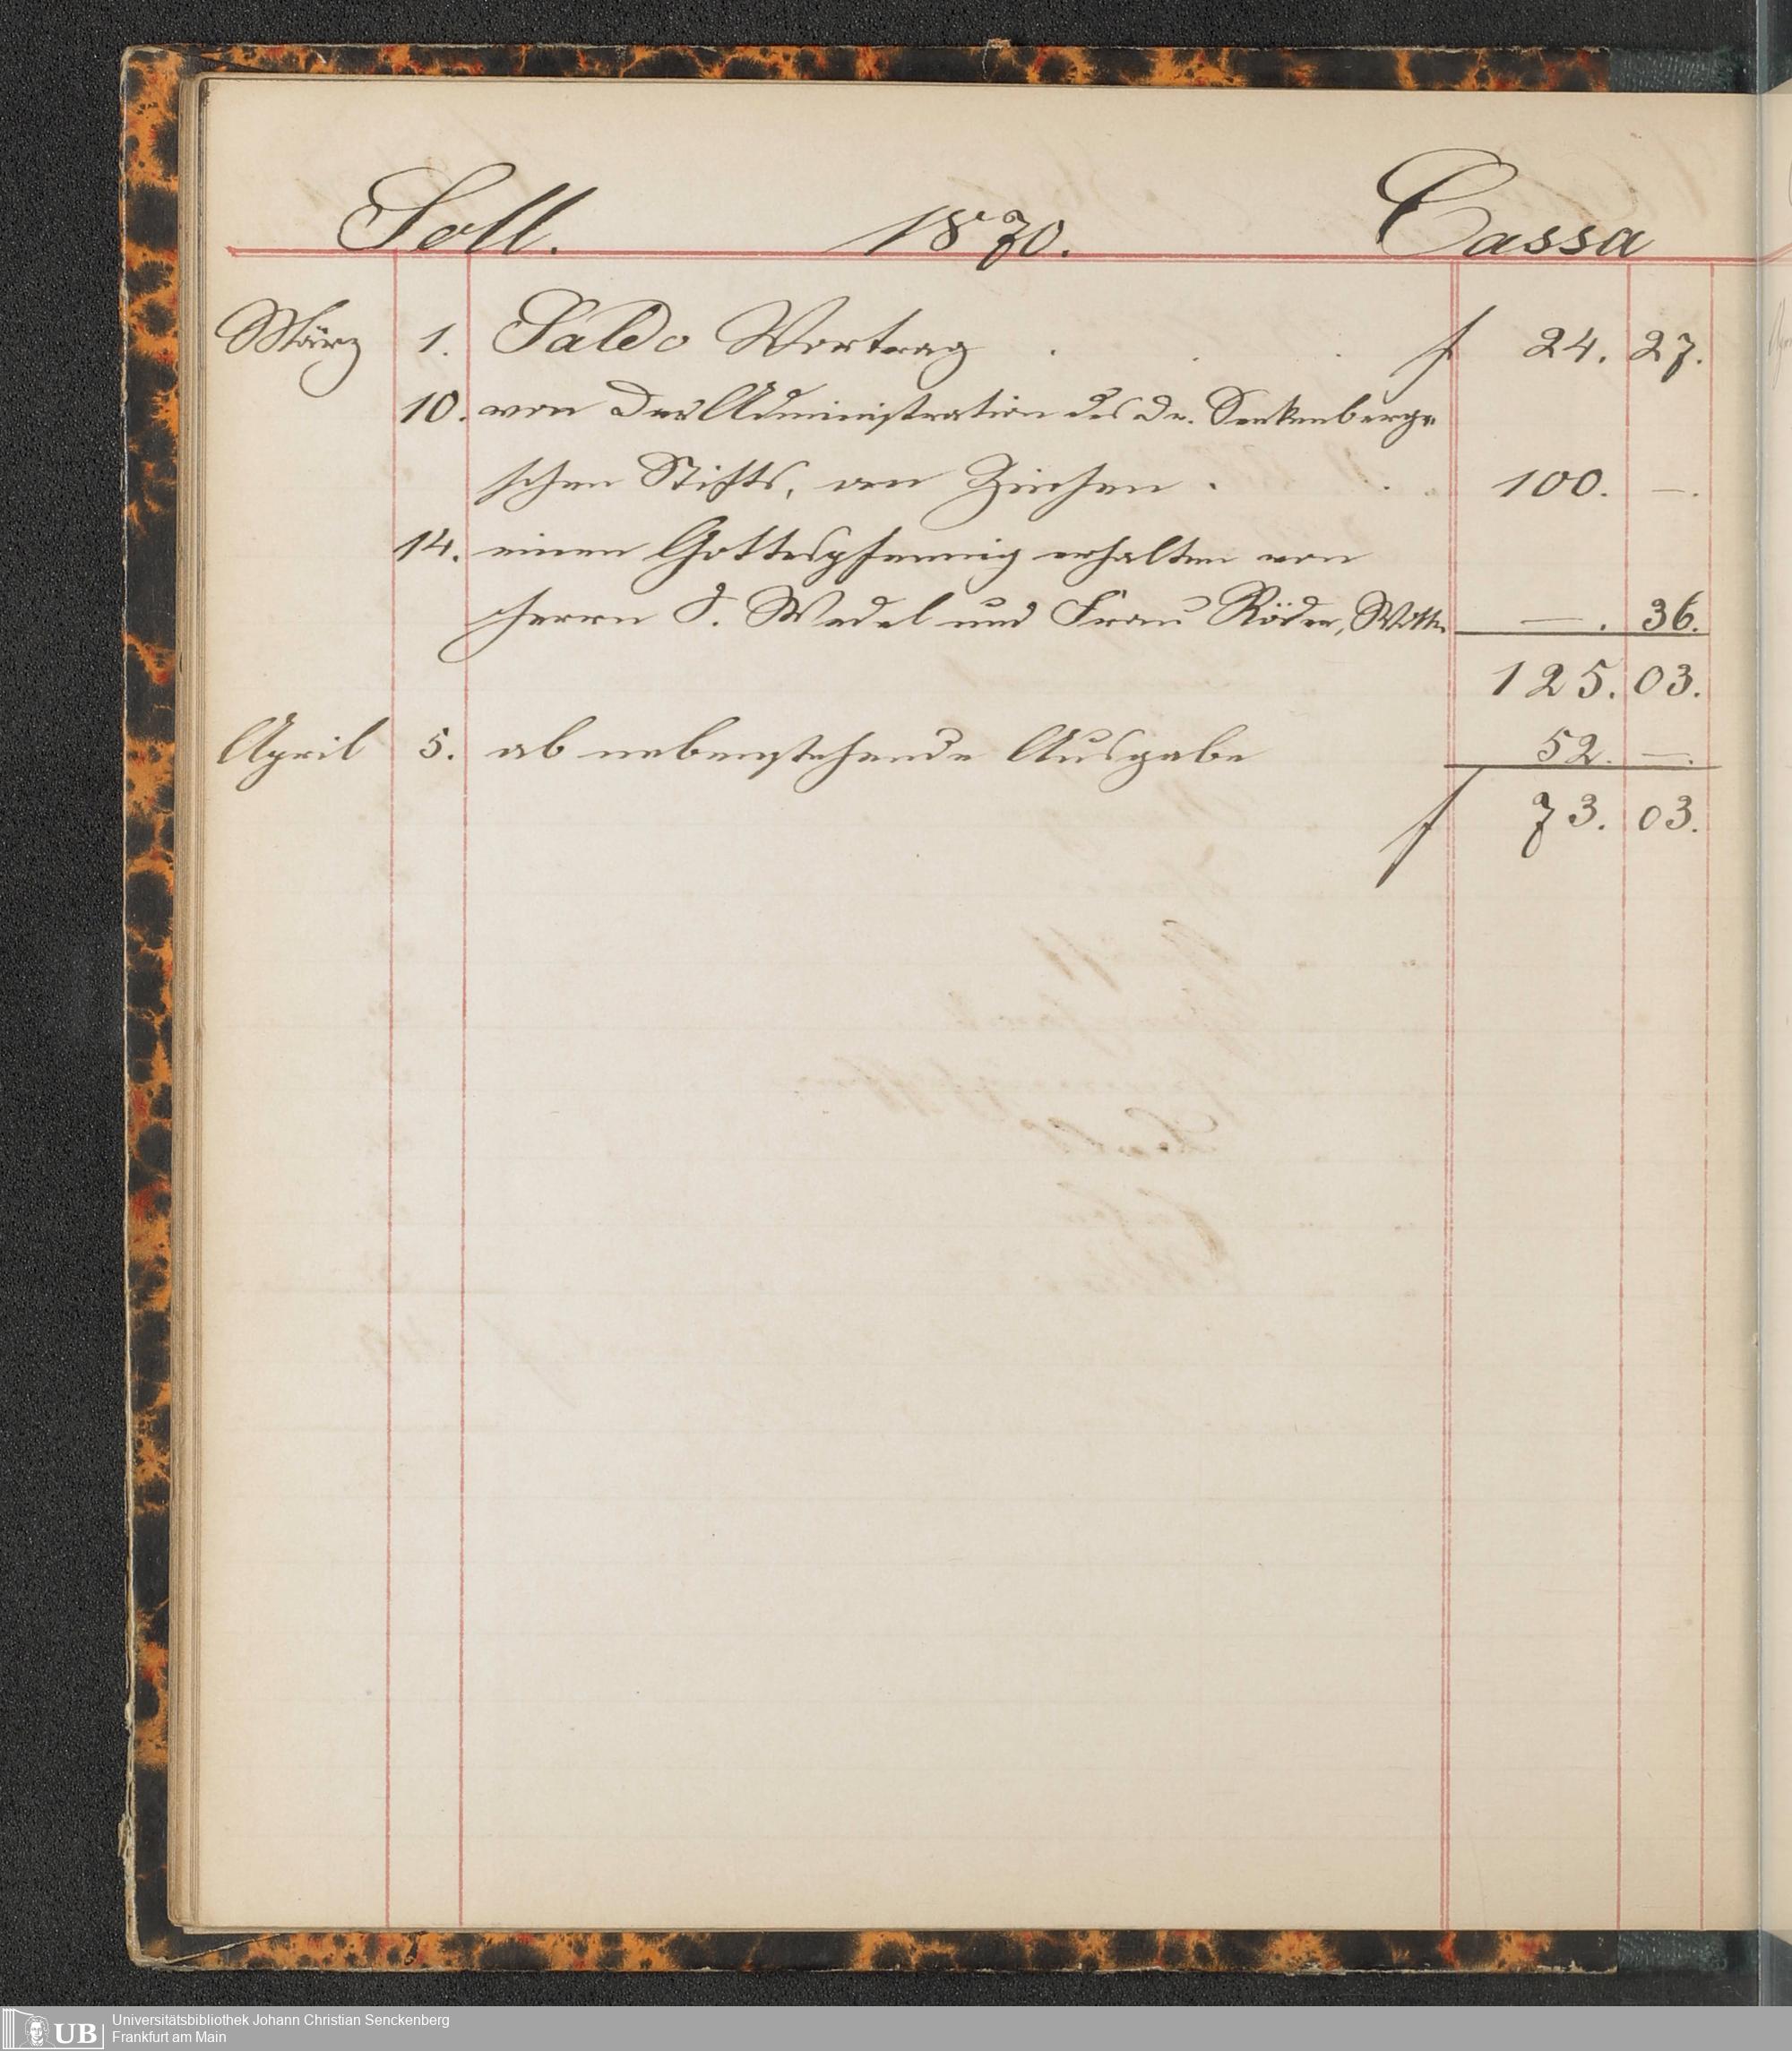 Soll. 1870. Cassa
März 1. Saldo Vortrag . . . f 24. 27.
10. von der Administration des Dr. Senkenberg-
schen Stifts, an Zinsen . . 100. —.
14. einen Gottespfennig erhalten von
Herrn J. Wedel und Frau Röder, Wttb —. 36.
125. 03.
April 5. ab nebenstehende Ausgabe 52. —.
f 73. 03.
UB Universitätsbibliothek Johann Christian Senckenberg
Frankfurt am Main